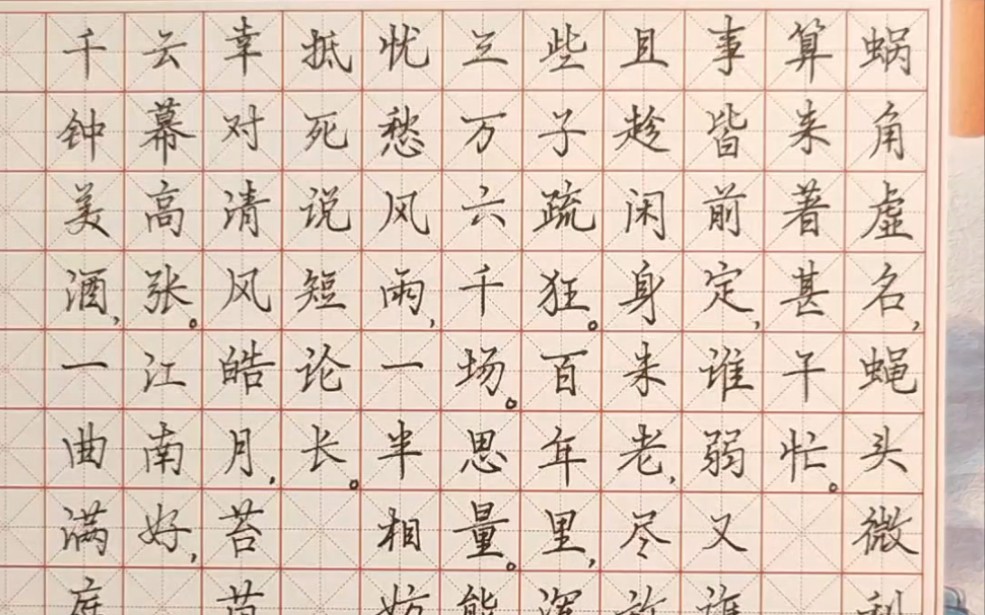 蜗角虚名,蝇头微利
算来著甚干忙。
事皆前定,谁弱又谁
且趁闲身未老,尽放
些子疏狂。百年里,浑
三万六千场。思量。能
忧愁风雨,一半相妨
抵死说短论长。
幸对清风皓月,苔茵
云幕高张。江南好,
千钟美酒,一曲满庭